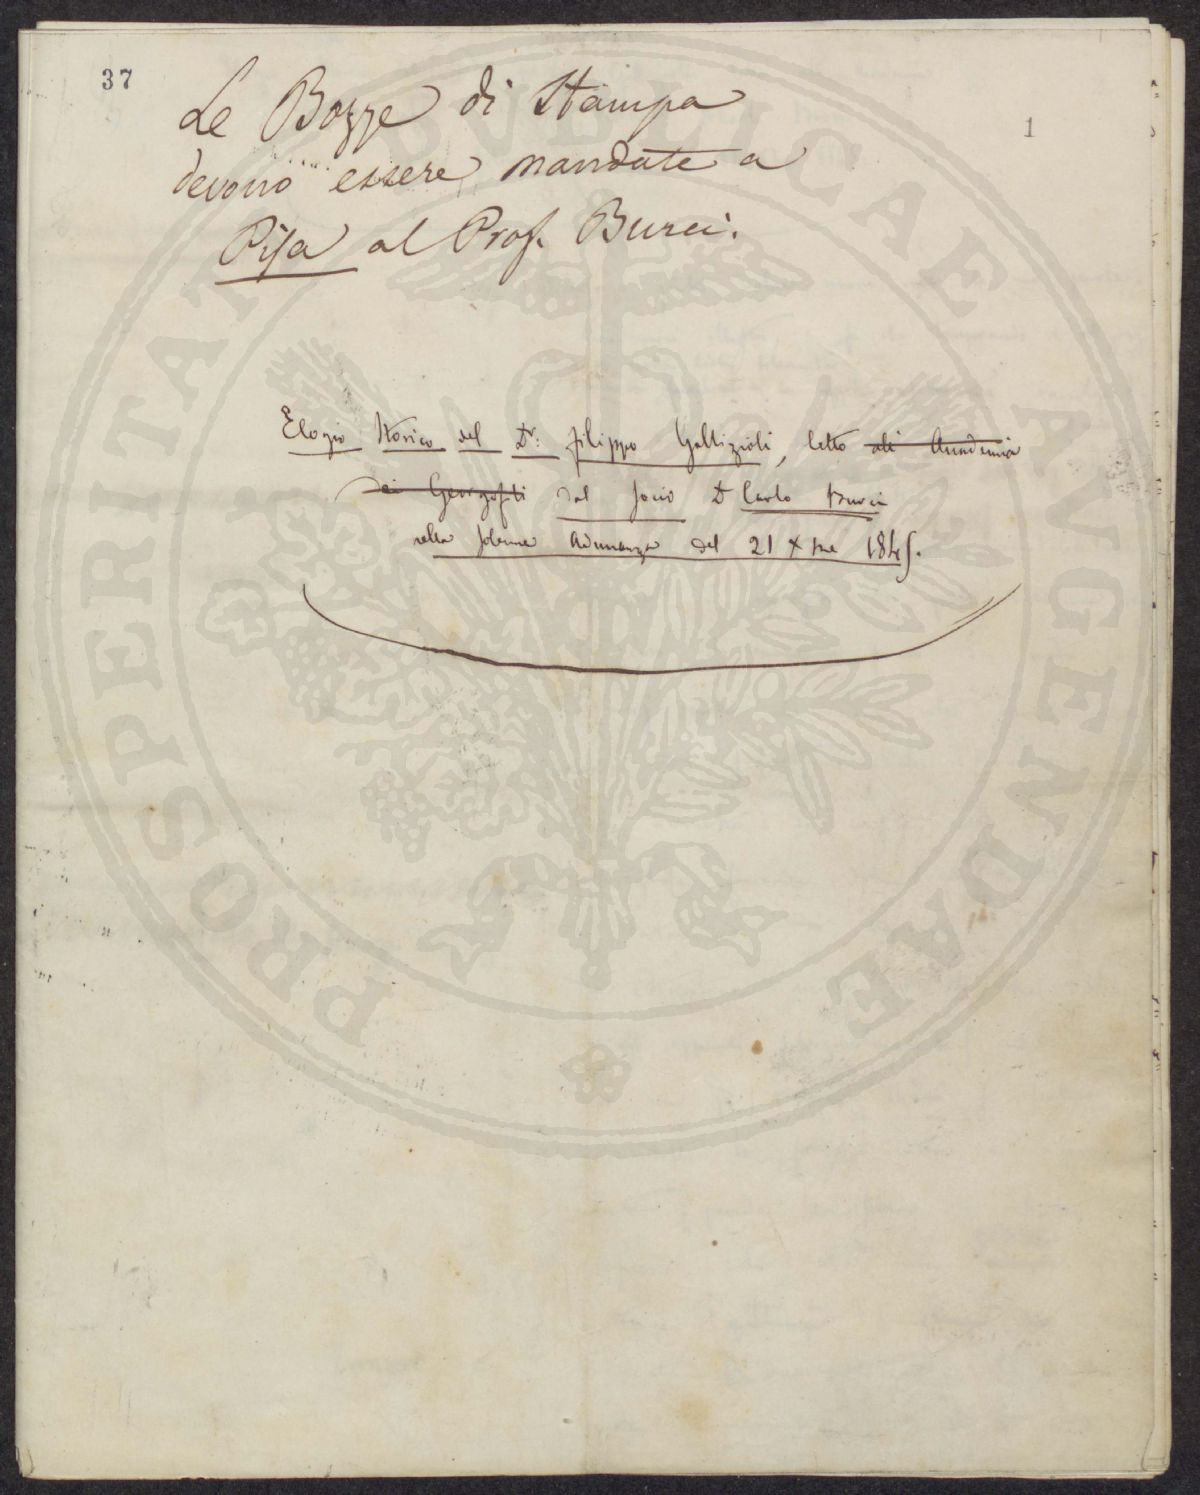 37
1
Le Bozze di Stampa
devono essere mandate a
Pisa al Prof. Burci.
Elogio Storico del Dr: Filippo Gallizioli, letto all' Accademia
dei Georgofili dal socio D Carlo Burci
nella solenne Adunanza del 21 Xbre 1845.
PROSPERITATI PUBLICAE AVGENDAE